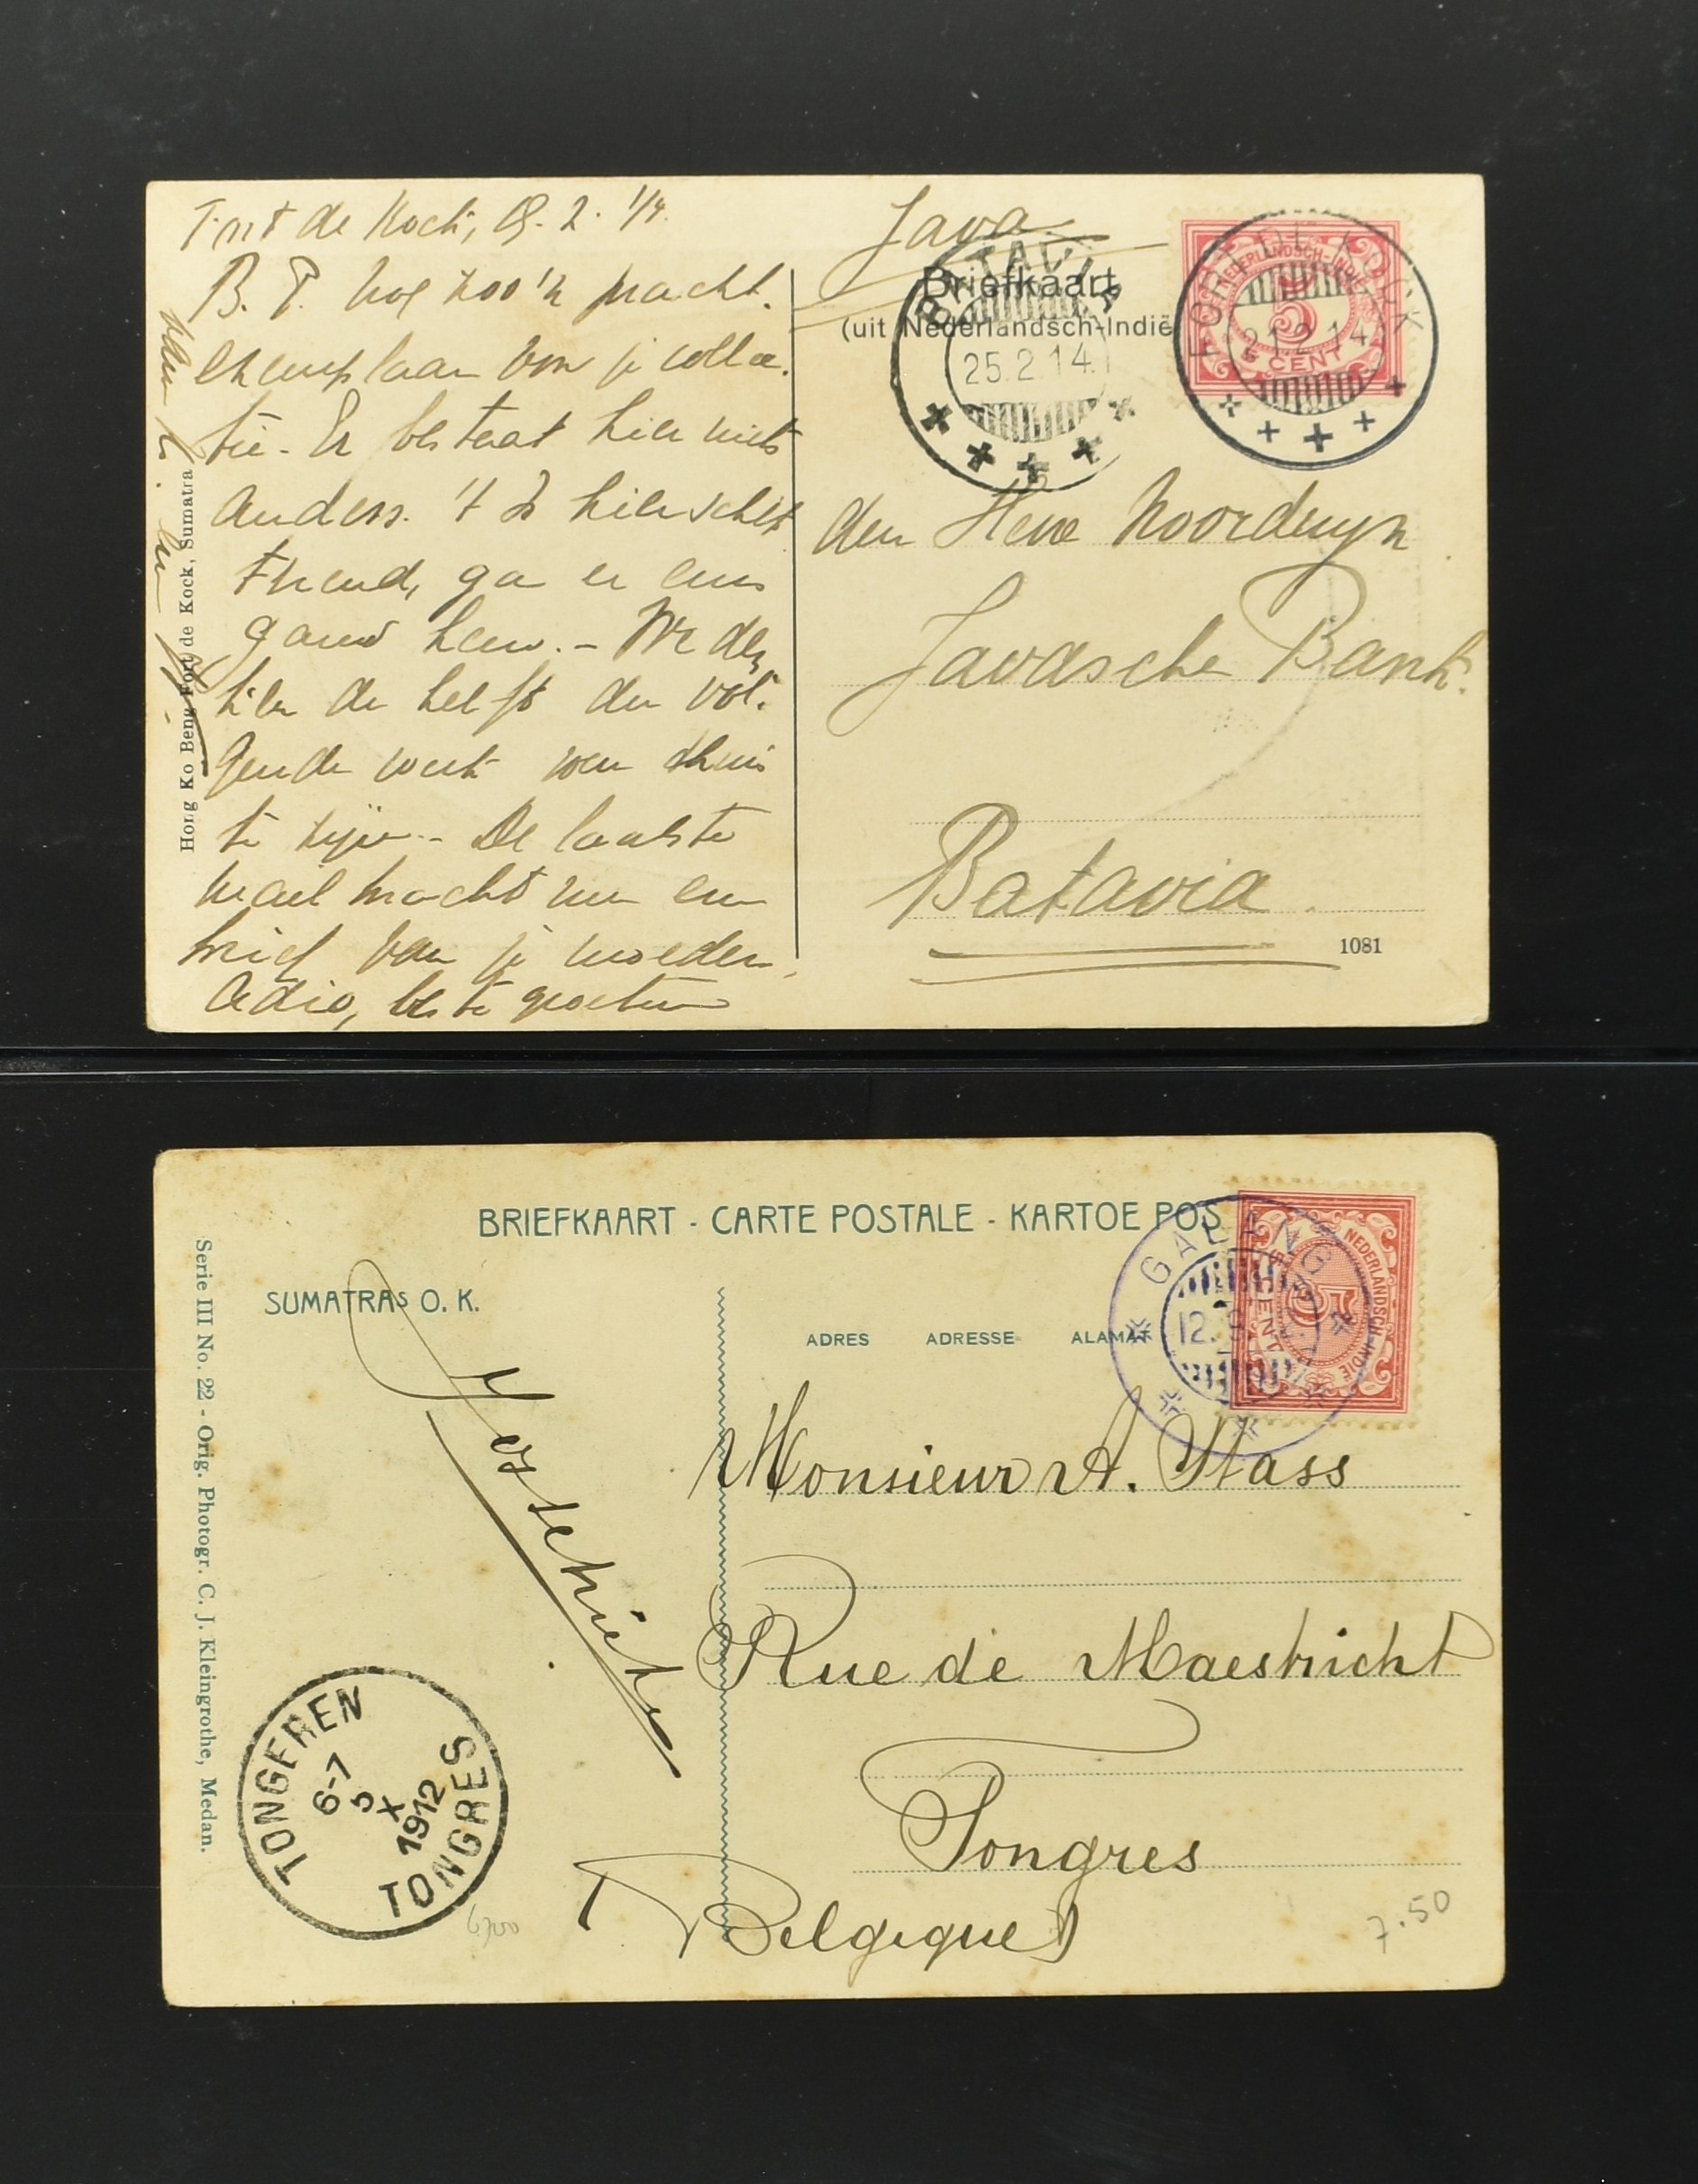 Fort de Kock,
B. T. nog zoo'n pracht-
exemplaar van je collec-
tie. Er bestaat hier niets
anders. 't Is hier schit-
terend, ga er eens
gauw heen. - We den-
ken de helft der vol-
gende week weer thuis
te zijn. - De laatste
mail bracht me een
brief van je moeder.
Adio, beste groeten
Hong Ko Beng Fort de Kock, Sumatra
Java
Briefkaart
(uit Nederlandsch-Indië
BATAVIA
25.2.14.
FORT DE KOCK
21.2.14
NEDERLANDSCH-INDIE
5
CENT
den Heer Noorduyn
Javasche Bank.
Batavia
1081
BRIEFKAART - CARTE POSTALE - KARTOE POS
SUMATRAS O. K.
ADRES ADRESSE ALAMAT
GALANG
12.9
NEDERLANDSCH-INDIE
5
CENT
Serie III No. 22 - Orig. Photogr. C. J. Kleingrothe, Medan.
Monsieur A. Stass
Rue de Maestricht
Tongres
Belgique
TONGEREN
6-7
5
X
1912
TONGRES
7.50